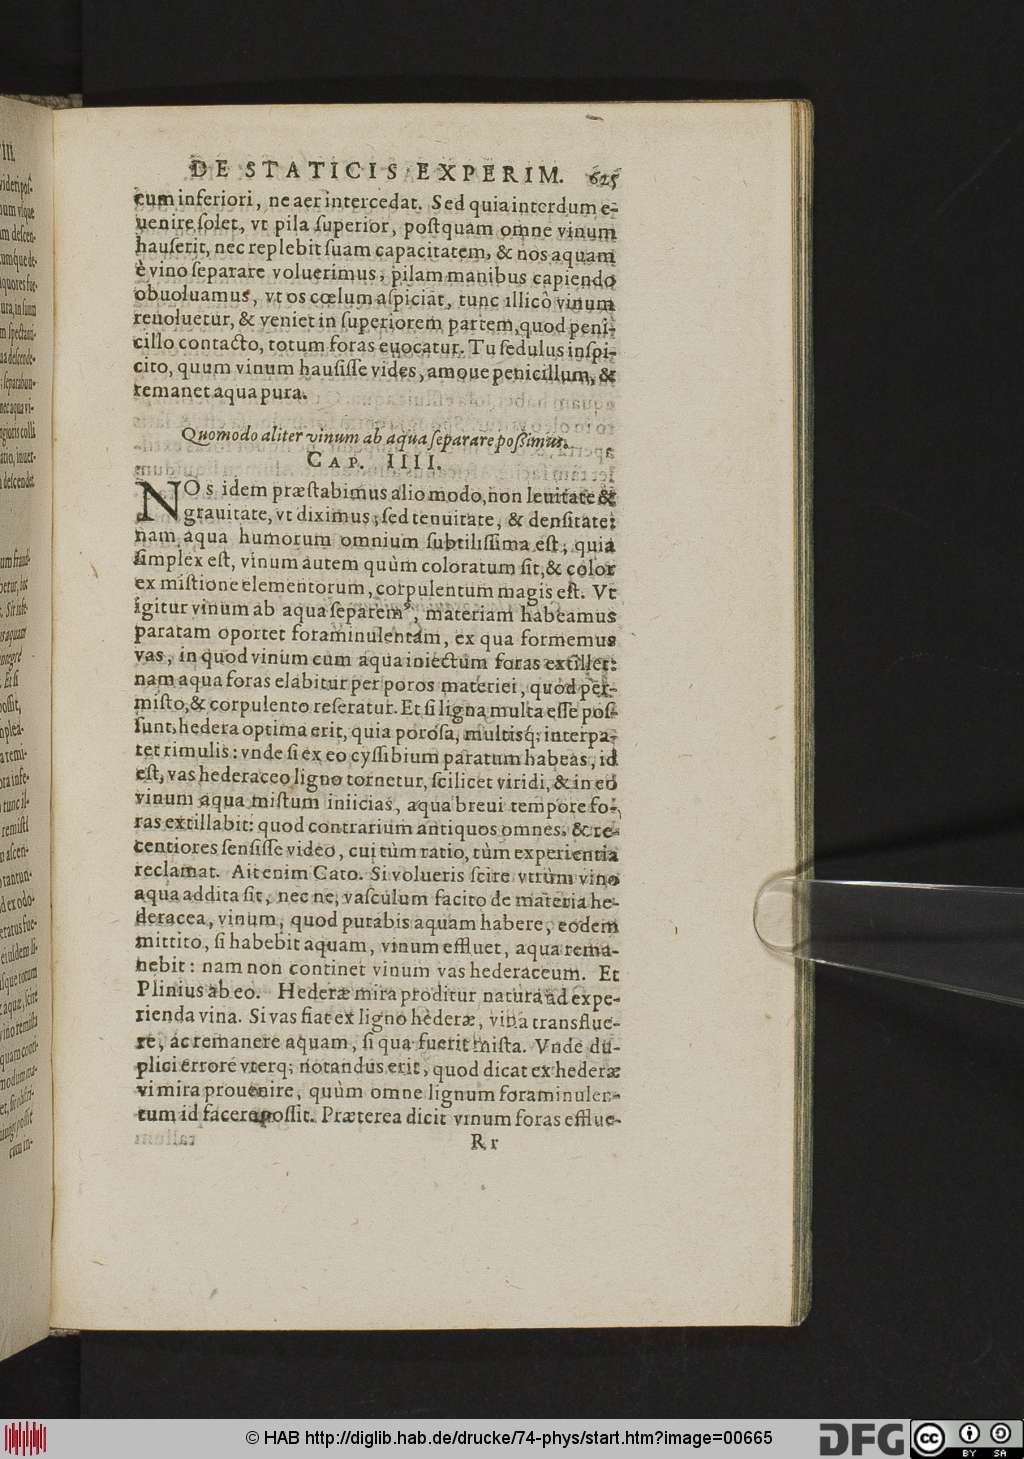 DE STATICIS EXPERIM. 625
cum inferiori, ne aer intercedat. Sed quia interdum e-
uenire ſolet, vt pila ſuperior, poſtquam omne vinum
hauſerit, nec replebit ſuam capacitatem, & nos aquam
è vino ſeparare voluerimus, pilam manibus capiendo
obuoluamus, vt os cœlum aſpiciat, tunc illicò vinum
reuoluetur, & veniet in ſuperiorem partem, quod peni-
cillo contacto, totum foras euocatur. Tu ſedulus inſpi-
cito, quum vinum hauſiſſe vides, amoue penicillum, &
remanet aqua pura.
Quomodo aliter vinum ab aqua ſeparare poßimus.
CAP. IIII.
NOs idem præſtabimus alio modo, non leuitate &
grauitate, vt diximus, ſed tenuitate, & denſitate:
nam aqua humorum omnium ſubtiliſſima eſt, quia
ſimplex eſt, vinum autem quùm coloratum ſit, & color
ex miſtione elementorum, corpulentum magis eſt. Vt
igitur vinum ab aqua ſeparemꝰ, materiam habeamus
paratam oportet foraminulentam, ex qua formemus
vas, in quod vinum cum aqua iniectum foras extillet:
nam aqua foras elabitur per poros materiei, quod per-
miſto, & corpulento reſeratur. Et ſi ligna multa eſſe poſ-
ſunt, hedera optima erit, quia poroſa, multisq; interpa-
tet rimulis: vnde ſi ex eo cyſſibium paratum habeas, id
eſt, vas hederaceo ligno tornetur, ſcilicet viridi, & in eo
vinum aqua miſtum iniicias, aqua breui tempore fo-
ras extillabit: quod contrarium antiquos omnes, & re-
centiores ſenſiſſe video, cui tùm ratio, tùm experientia
reclamat. Ait enim Cato. Si volueris ſcire vtrùm vino
aqua addita ſit, nec ne, vaſculum facito de materia he-
deracea, vinum, quod putabis aquam habere, eodem
mittito, ſi habebit aquam, vinum effluet, aqua rema-
nebit: nam non continet vinum vas hederaceum. Et
Plinius ab eo. Hederæ mira proditur natura ad expe-
rienda vina. Si vas fiat ex ligno hederæ, vina transflue-
re, ac remanere aquam, ſi qua fuerit miſta. Vnde du-
plici errore vterq; notandus erit, quod dicat ex hederæ
vi mira prouenire, quùm omne lignum foraminulen-
tum id facere poſſit. Præterea dicit vinum foras efflue-
Rr
© HAB http://diglib.hab.de/drucke/74-phys/start.htm?image=00665
DFG
cc BY SA